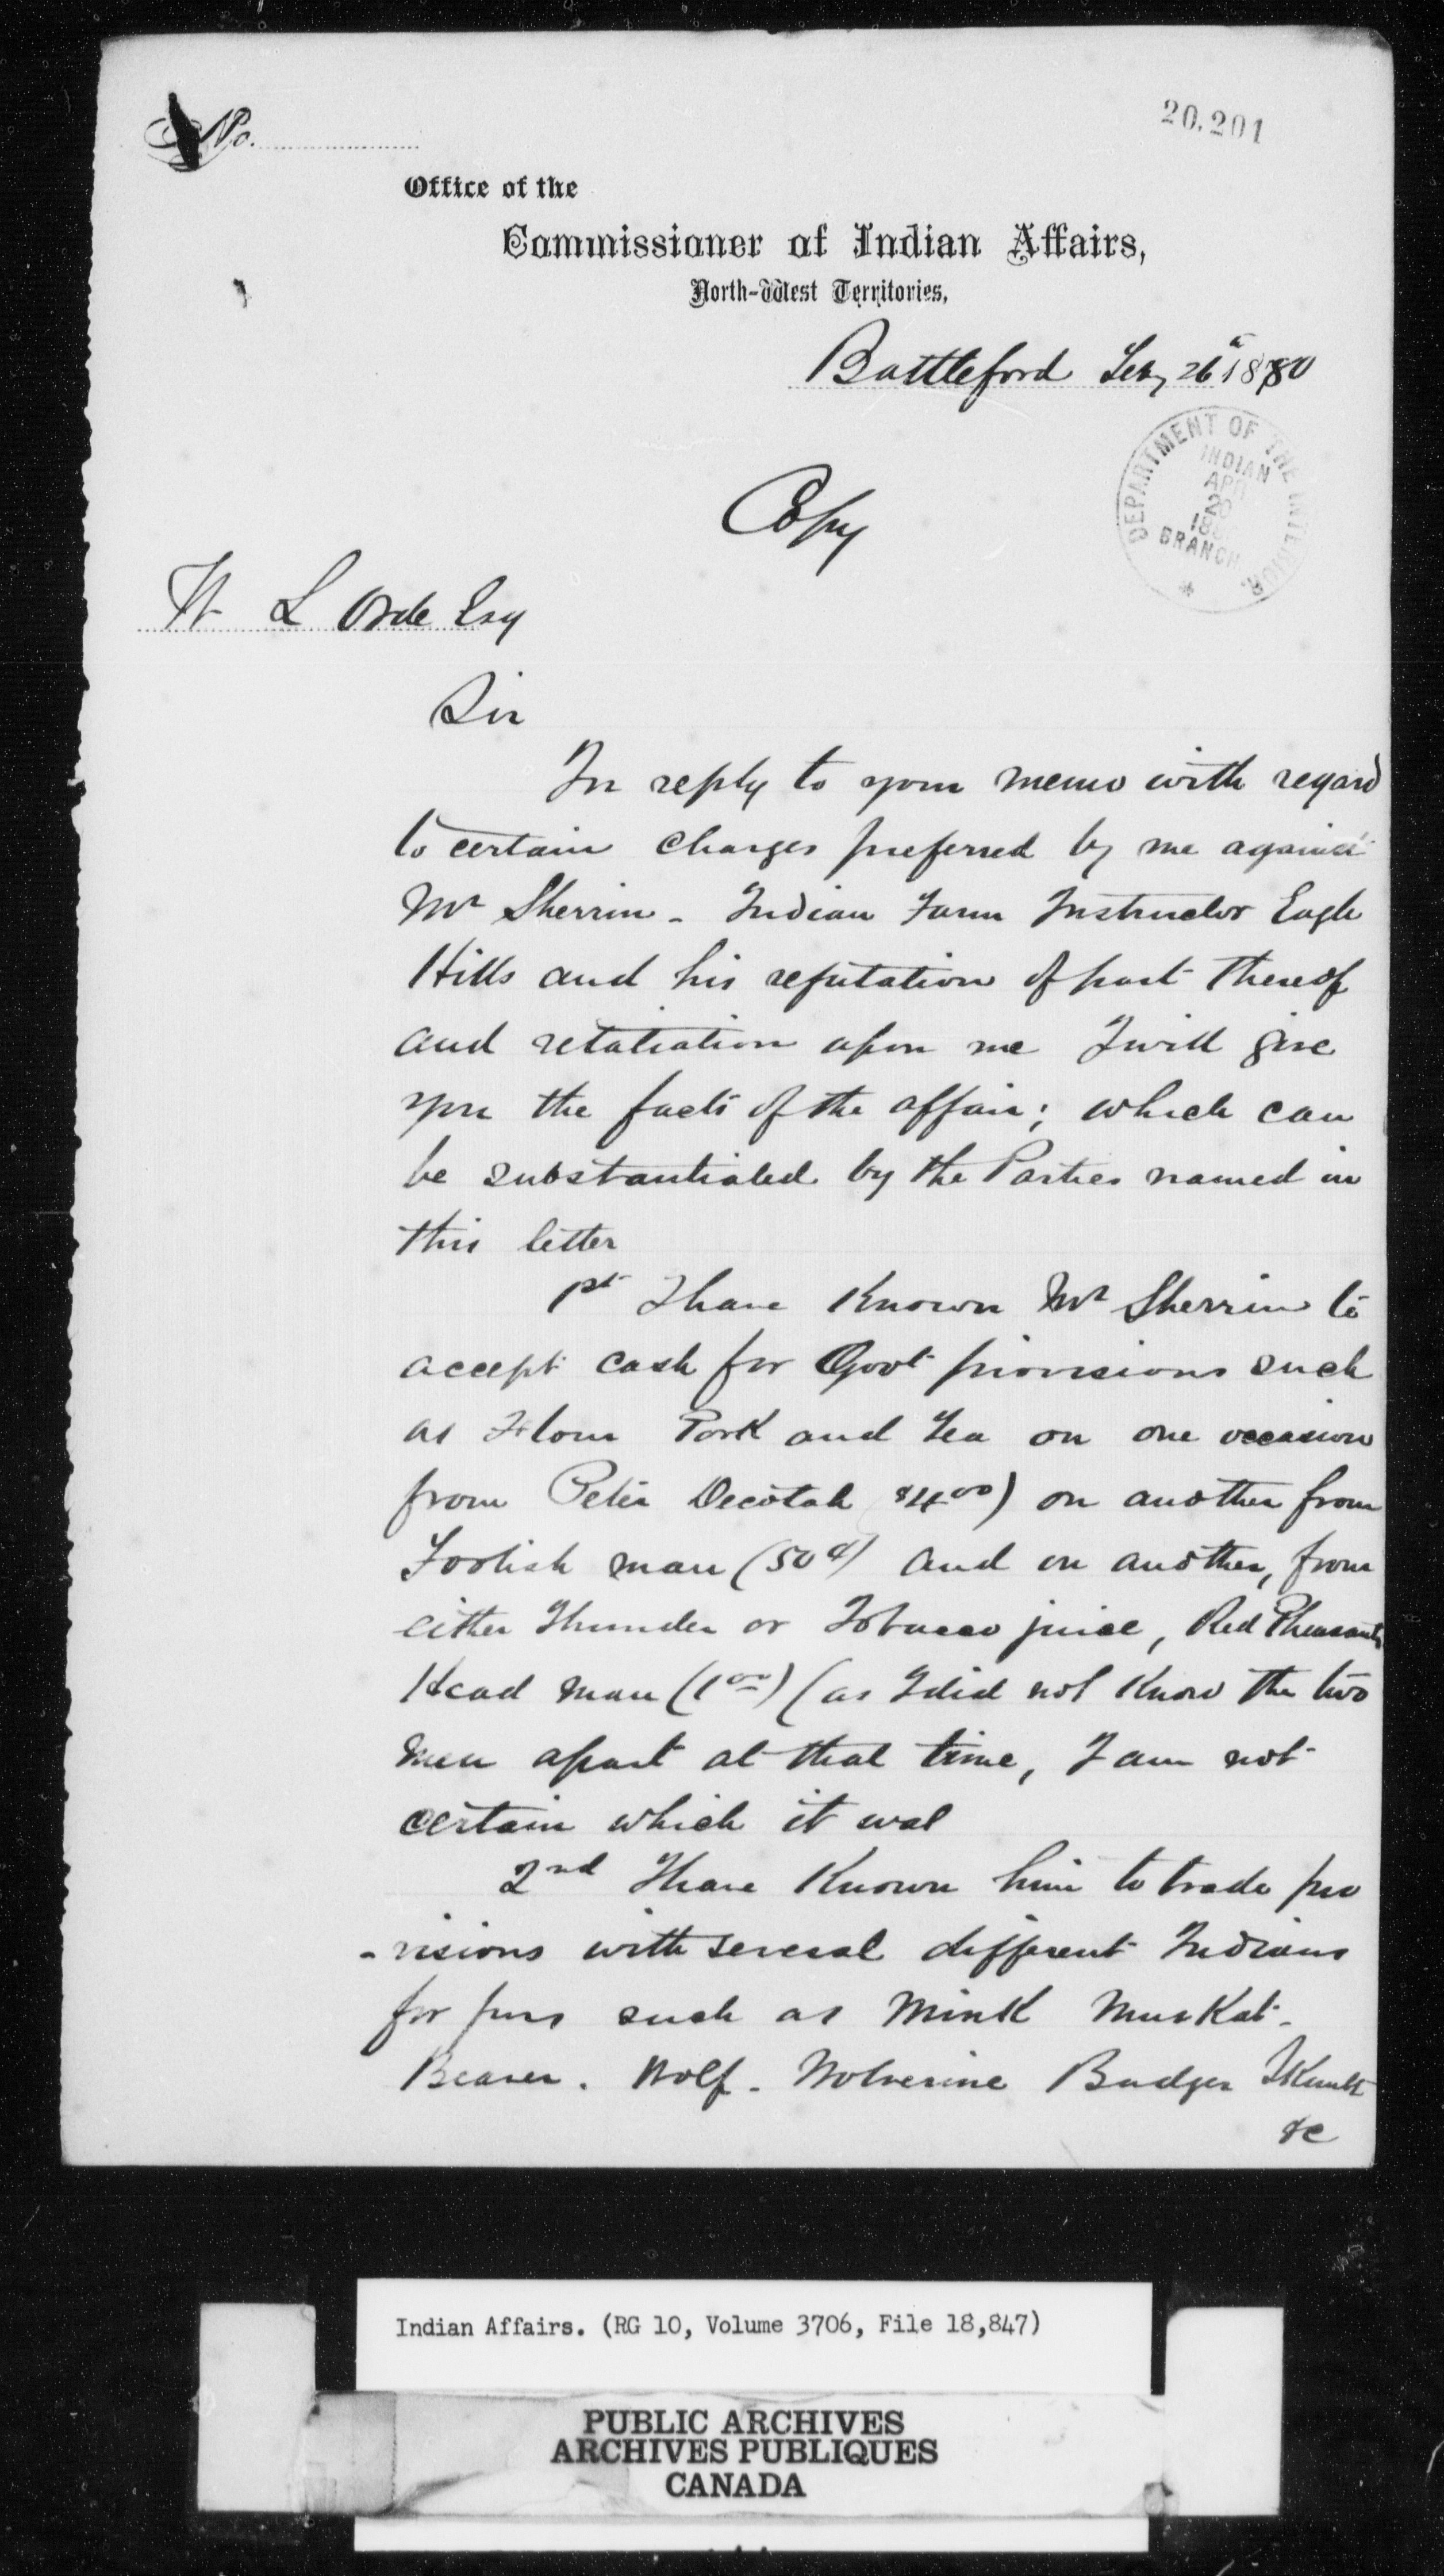 No.
20,201
Office of the
Commissioner of Indian Affairs,
North-West Territories,
Battleford Feby 26th 1880
Copy
DEPARTMENT OF THE INTERIOR
INDIAN
APR
20
188
BRANCH
W L Orde Esq
Sir
In reply to your memo with regard
to certain charges preferred by me against
Mr Sherrin - Indian Farm Instructor Eagle
Hills and his refutation of part thereof
and retaliation upon me I will give
you the facts of the affair; which can
be substantiated by the Parties named in
this letter
1st I have Known Mr Sherrin to
accept cash for Govt provisions such
as Flour Pork and Tea on one occasion
from Peter Decotah $4 00) on another from
Foolish man (50 ¢) and on another, from
either Thunder or Tobacco juice, Red Pheasants
Head man (1 00) (as I did not Know the two
men apart at that time, I am not
certain which it was
2nd I have Known him to trade pro
-visions with several different Indians
for furs such as Mink Muskat -
Beaver. Wolf - Wolverine Badger Skunk
&c
Indian Affairs. (RG 10, Volume 3706, File 18,847)
PUBLIC ARCHIVES
ARCHIVES PUBLIQUES
CANADA